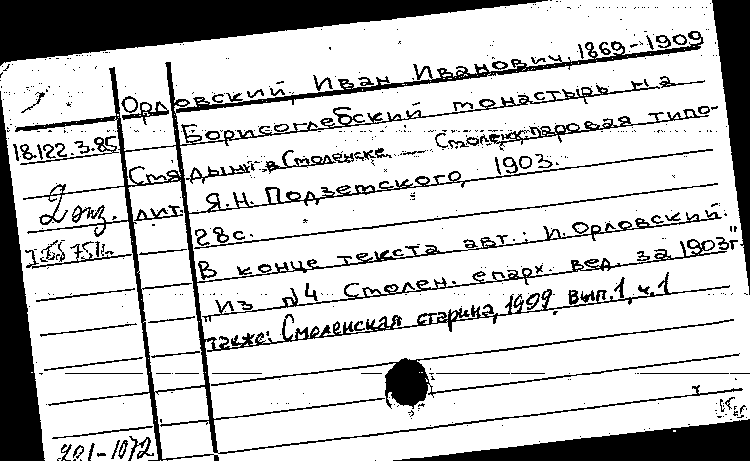 Орловский, Иван Иванович, 1869-1909
Борисоглебский монастырь на
18.122.3.85
Смядыни в Смоленске. — Смоленск, паровая типо-
2 экз.
лит. Я.Н. Подземского, 1903.
28с.
В конце текста авт.: И. Орловский.
„Из №4 Смолен. епарх. вед. за 1903г."
также: Смоленская старина, 1909, вып.1, ч.1
201-1072